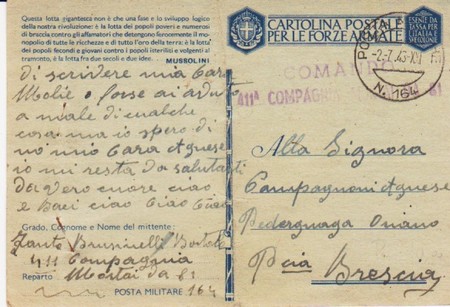 Questa lotta gigantesca non è che una fase e lo sviluppo logico
della nostra rivoluzione: è la lotta dei popoli poveri e numerosi
di braccia contro gli affamatori che detengono ferocemente il
monopolio di tutte le ricchezze e di tutto l'oro della terra: è la lotta
dei popoli fecondi e giovani contro i popoli isteriliti e volgenti al
tramonto, è la lotta fra due secoli e due idee.
MUSSOLINI
di scrivere mia Cara
Molie o forse ai avuto
a male di cualche
cosa ma io spero di
no mio Cara Agnese
io mi resta da salutarti
da vero cuore ciao
e Baci ciao Ciao Ciao
Grado, Cognome e Nome del mittente:
Bortolo
411 Compagnia
Reparto Mortai da 81
POSTA MILITARE 164
CARTOLINA POSTALE
PER LE FORZE ARMATE
ESENTE DA
TASSA PER
L'ITALIA E
SPEDIZIONE
POSTA
N. 164
COMANDO
411ª COMPAGNIA 81
Alla Signora
Compagnoni Agnese
Pedergnaga Oriano
Pcia Brescia